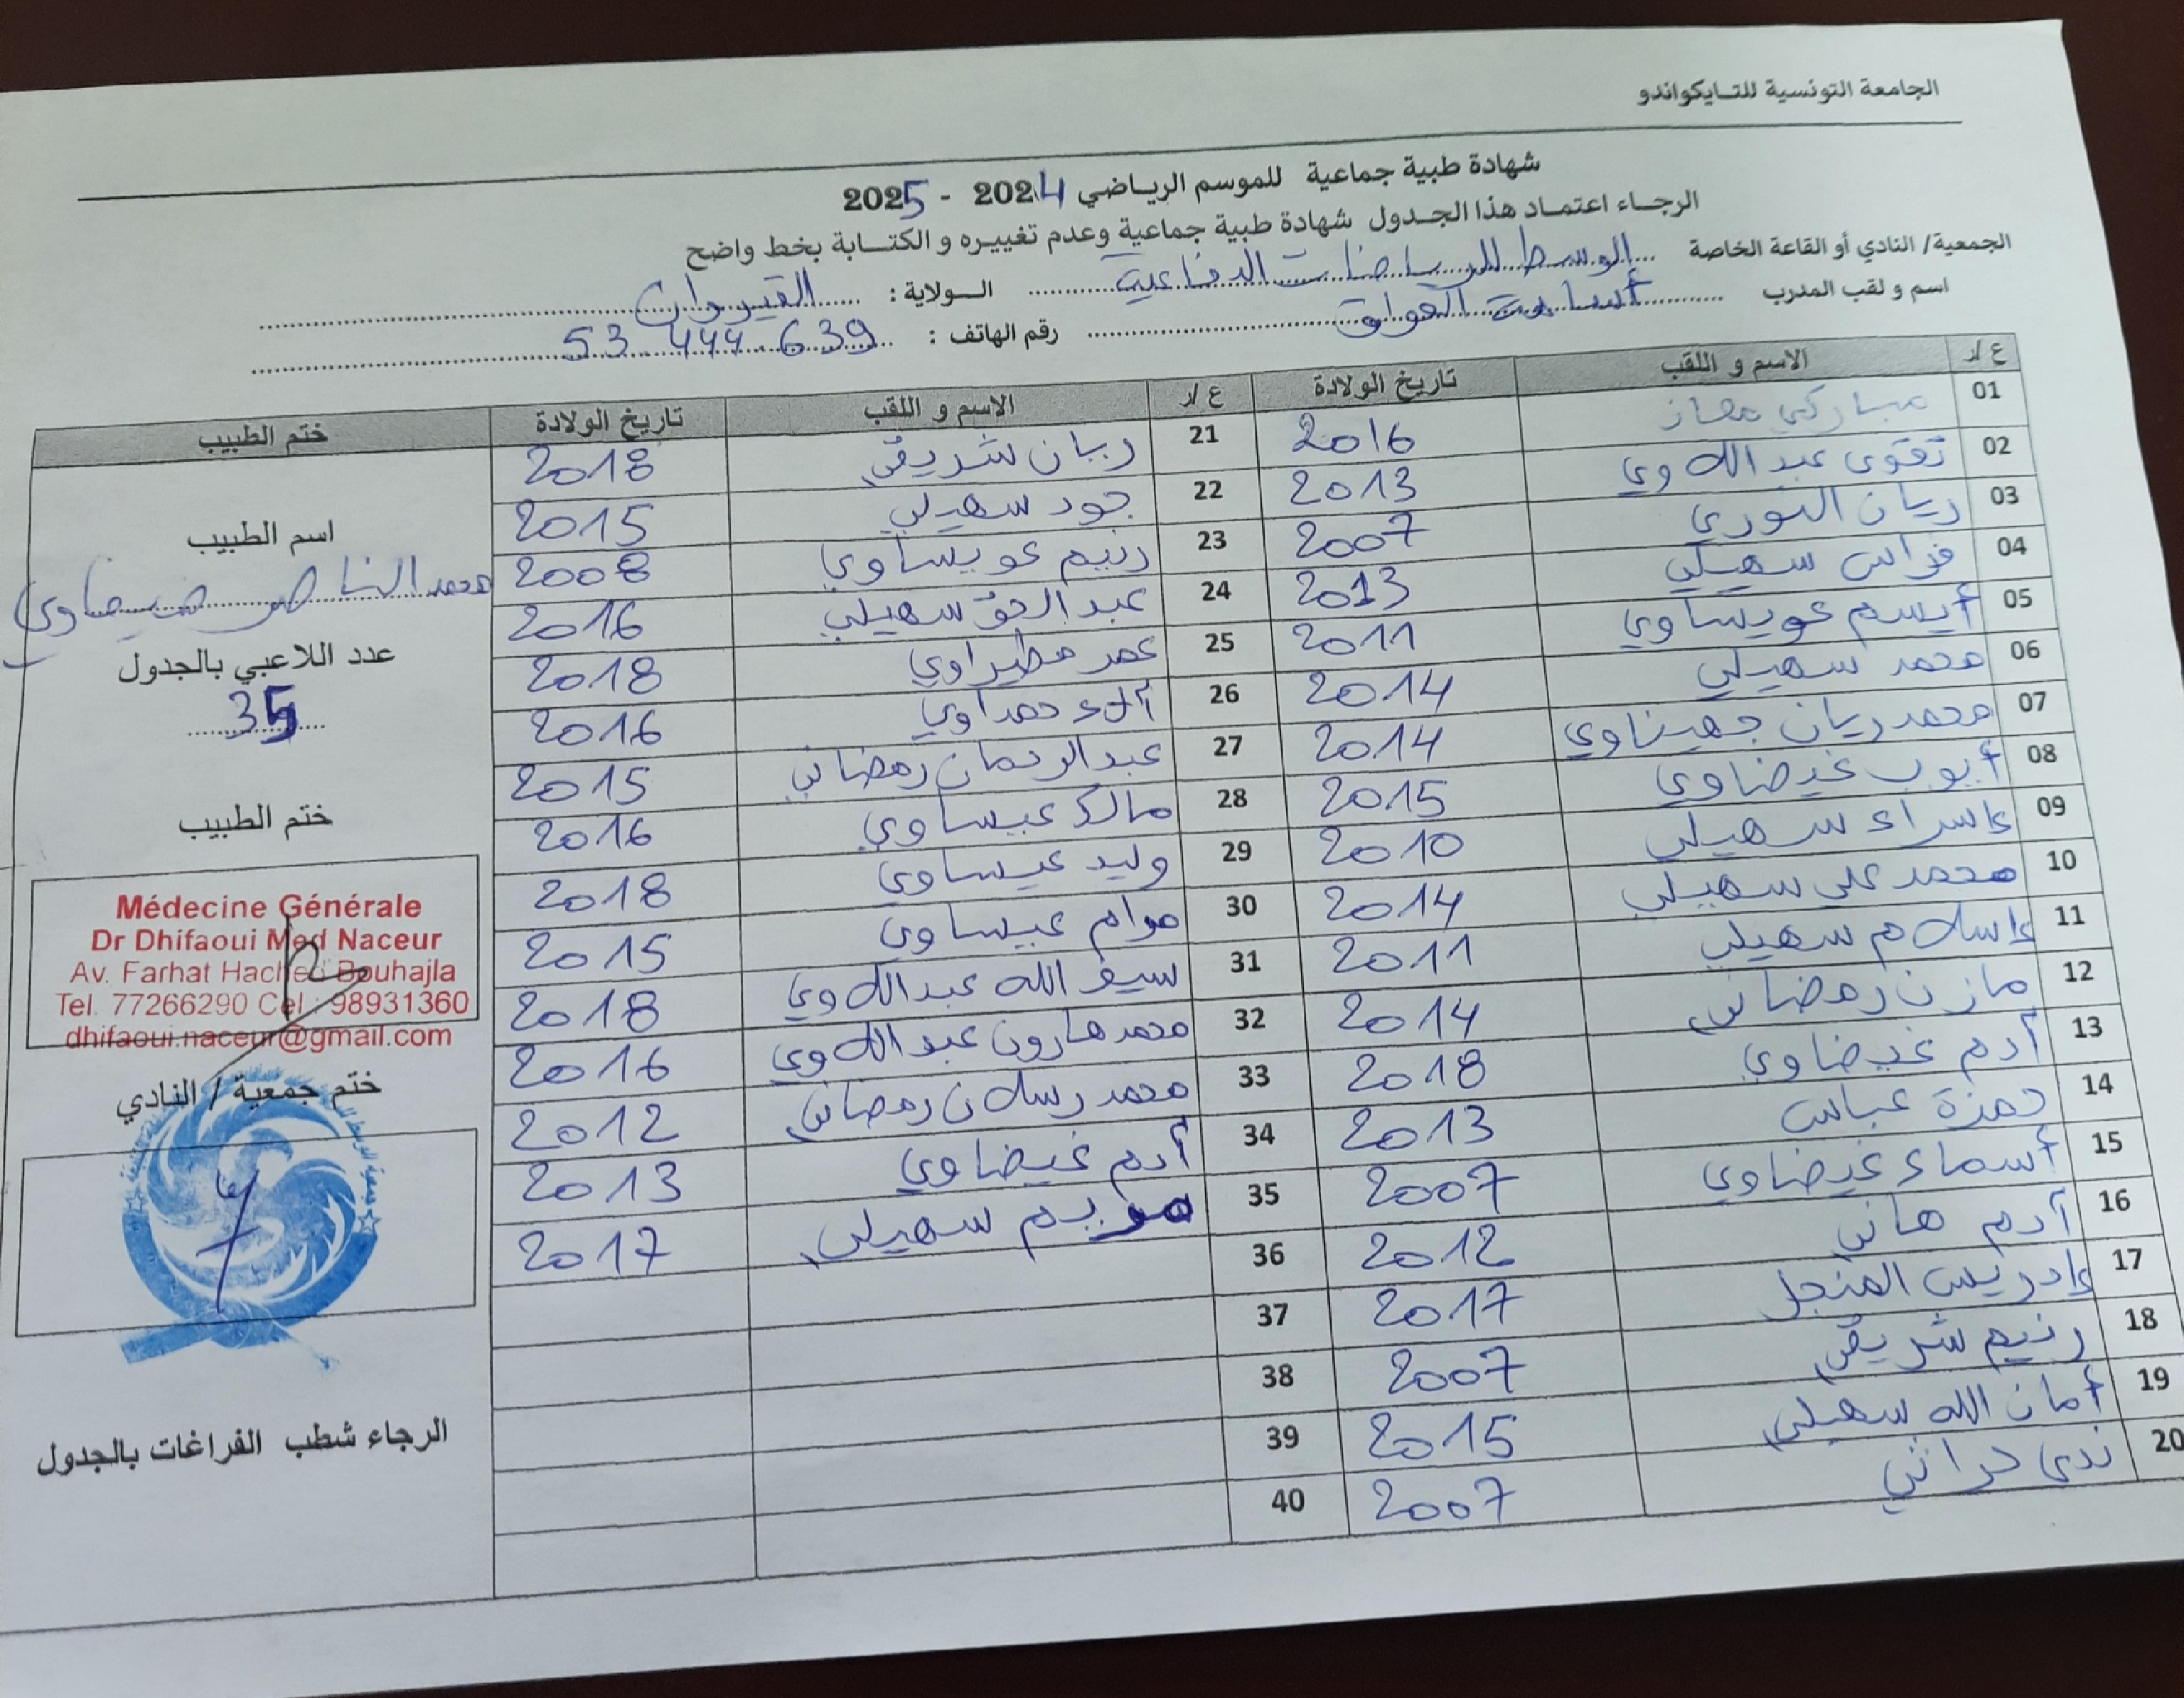 الجامعة التونسية للتــايكواندو
شهادة طبية جماعية للموسم الريـاضي 2024 - 2025
الرجـاء اعتمـاد هذا الجـدول شهادة طبية جماعية وعدم تغييـره و الكتـــابة بخط واضح
الجمعية/ النادي أو القاعة الخاصة الوسط للرياضات الدفاعية الـــولاية : القيروان
اسم و لقب المدرب أسامة رقم الهاتف : 53 444 639
ع /ر الاسم و اللقب تاريخ الولادة ع /ر الاسم و اللقب تاريخ الولادة ختم الطبيب
01 مباركي معاز 2016 21 ريان شريقي 2018
02 تقوى عبد اللاوي 2013 22 جود سهيلي 2015
03 ريان النوري 2007 23 رنيم عويساوي 2008
04 فراس سهيلي 2013 24 عبد الحق سهيلي 2016
05 أيسم عويساوي 2011 25 عمر مطيراوي 2018
06 محمد سهيلي 2014 26 آلاء حمداوي 2016
07 محمد ريان جهيناوي 2014 27 عبد الرحمان رمضاني 2015
08 أيوب غيضاوي 2015 28 مالك عيساوي 2016
09 إسراء سهيلي 2010 29 وليد عيساوي 2018
10 محمد علي سهيلي 2014 30 مرام عيساوي 2015
11 إسلام سهيلي 2011 31 سيف الله عبد اللاوي 2018
12 مازن رمضاني 2014 32 محمد هارون عبد اللاوي 2016
13 آدم غيضاوي 2018 33 محمد رسلان رمضاني 2012
14 حمزة عباس 2013 34 آدم غيضاوي 2013
15 أسماء غيضاوي 2007 35 مريم سهيلي 2017
16 آدم هاني 2012 36
17 إدريس المنجل 2017 37
18 رنيم شريقي 2007 38
19 أمان الله سهيلي 2015 39
20 ندى حراثي 2007 40
اسم الطبيب
محمد الناصر ضيفاوي
عدد اللاعبي بالجدول
35
ختم الطبيب
Médecine Générale
Dr Dhifaoui Med Naceur
Av. Farhat Hached Bouhajla
Tel. 77266290 Cel : 98931360
dhifaoui.naceur@gmail.com
ختم جمعية / النادي
الرجاء شطب الفراغات بالجدول